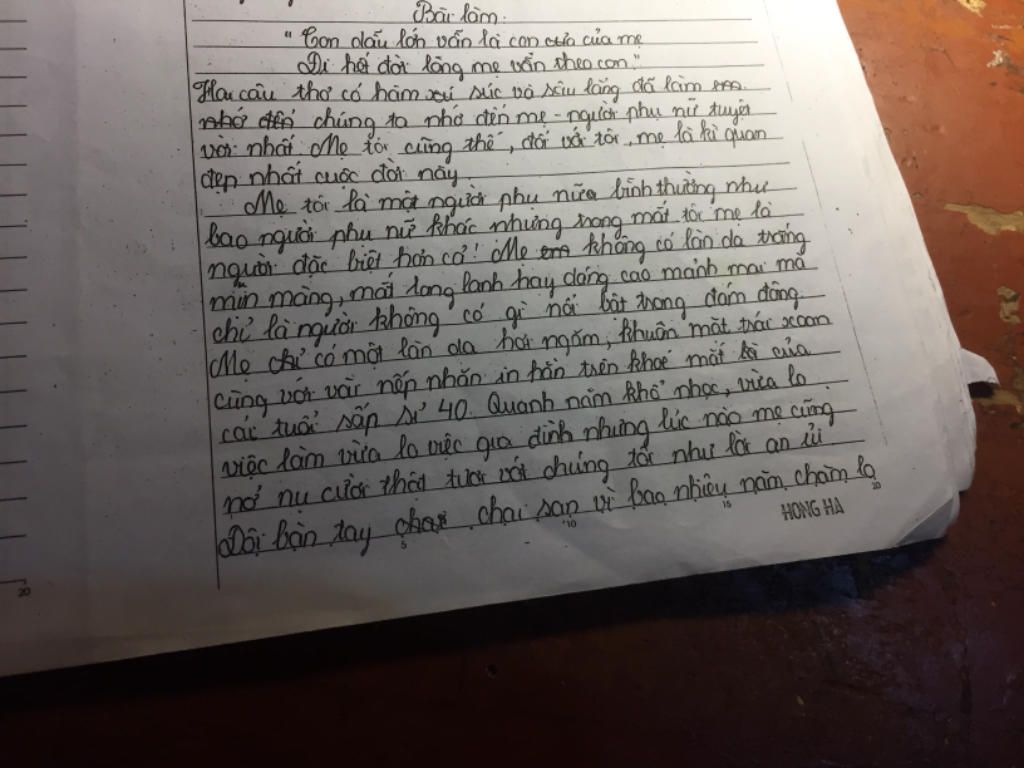 Bài làm.
" Con dẫu lớn vẫn là con của của mẹ
Đi hết đời lòng mẹ vẫn theo con."
Hai câu thơ có hàm xú súc và sâu lắng đã làm em
nhớ đến chúng ta nhớ đến mẹ - người phụ nữ tuyệt
vời nhất. Mẹ tôi cũng thế, đối với tôi, mẹ là kì quan
đẹp nhất cuộc đời này.
Mẹ tôi là một người phụ nữa bình thường như
bao người phụ nữ khác nhưng trong mắt tôi mẹ là
người đặc biệt hơn cả! Mẹ em không có làn da trắng
mịn màng, mắt long lanh hay dáng cao mảnh mai mà
chỉ là người không có gì nổi bật trong đám đông.
Mẹ chỉ có một làn da hơi ngăm, khuôn mặt trái xoan
cùng với vài nếp nhăn in hằn trên khoé mắt là của
cái tuổi sấp sỉ 40. Quanh năm khổ nhọc, vừa lo
việc làm vừa lo việc gia đình nhưng lúc nào mẹ cũng
nở nụ cười thật tươi với chúng tôi như lời an ủi
Đôi bàn tay chai chai sạn vì bao nhiêu năm chăm lo
5 10 15 20
HONG HA
20